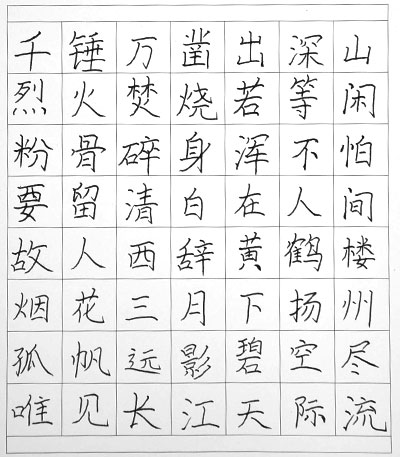 千锤万凿出深山
烈火焚烧若等闲
粉骨碎身浑不怕
要留清白在人间
故人西辞黄鹤楼
烟花三月下扬州
孤帆远影碧空尽
唯见长江天际流